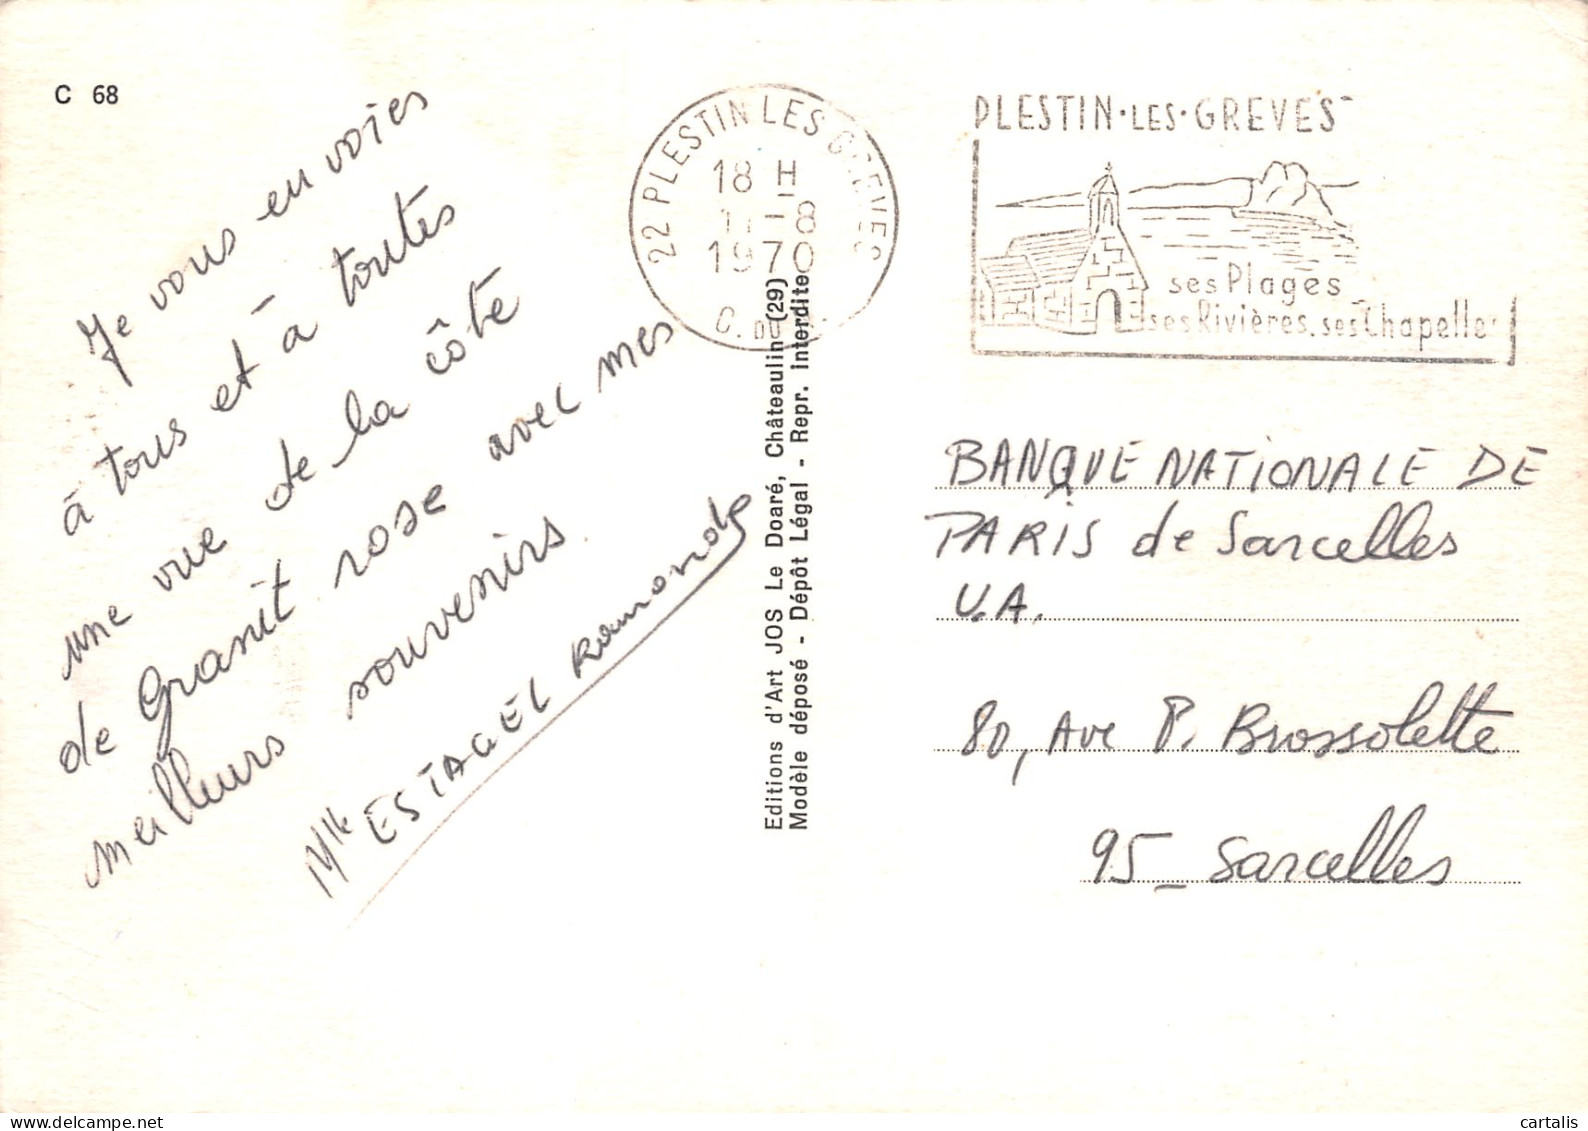 C 68
Je vous en voies
à tous et à toutes
une vue de la côte
de Granit rose avec mes
meilleurs souvenirs
Mlle ESTAGEL Ramonde
22 PLESTIN LES GREVES
18 H
11-8
1970
C. DU
PLESTIN·LES·GREVES
ses Plages
ses Rivières. ses Chapelles
Editions d'Art JOS Le Doaré, Châteaulin (29)
Modèle déposé - Dépôt Légal - Repr. interdite
BANQUE NATIONALE DE
PARIS de Sarcelles
U.A.
80, Ave P. Brossolette
95_ Sarcelles
delcampe.net
cartalis